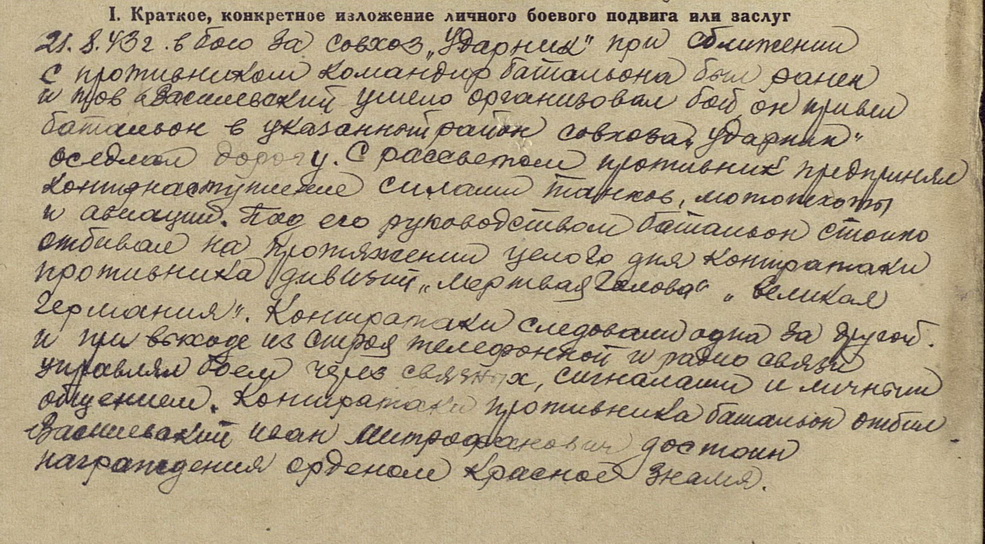 I. Краткое, конкретное изложение личного боевого подвига или заслуг
21.8.43г. в бою за совхоз „Ударник" при сближении
с противником командир батальона был ранен
и тов Василевский умело организовал бой он привел
батальон в указанный район совхоза „Ударник"
оседлал дорогу. С рассветом противник предпринял
контрнаступление силами танков, мотопехоты
и авиации. Под его руководством батальон стойко
отбивал на протяжении целого дня контратаки
противника дивизий „Мертвая Голова" „Великая
Германия". Контратаки следовали одна за другой.
и при выходе из строя телефонной и радио связи
управлял боем через связных, сигналами и личным
общением. Контратаки противника батальон отбил
Василевский Иван Митрофанович достоин
награждения орденом Красное Знамя.